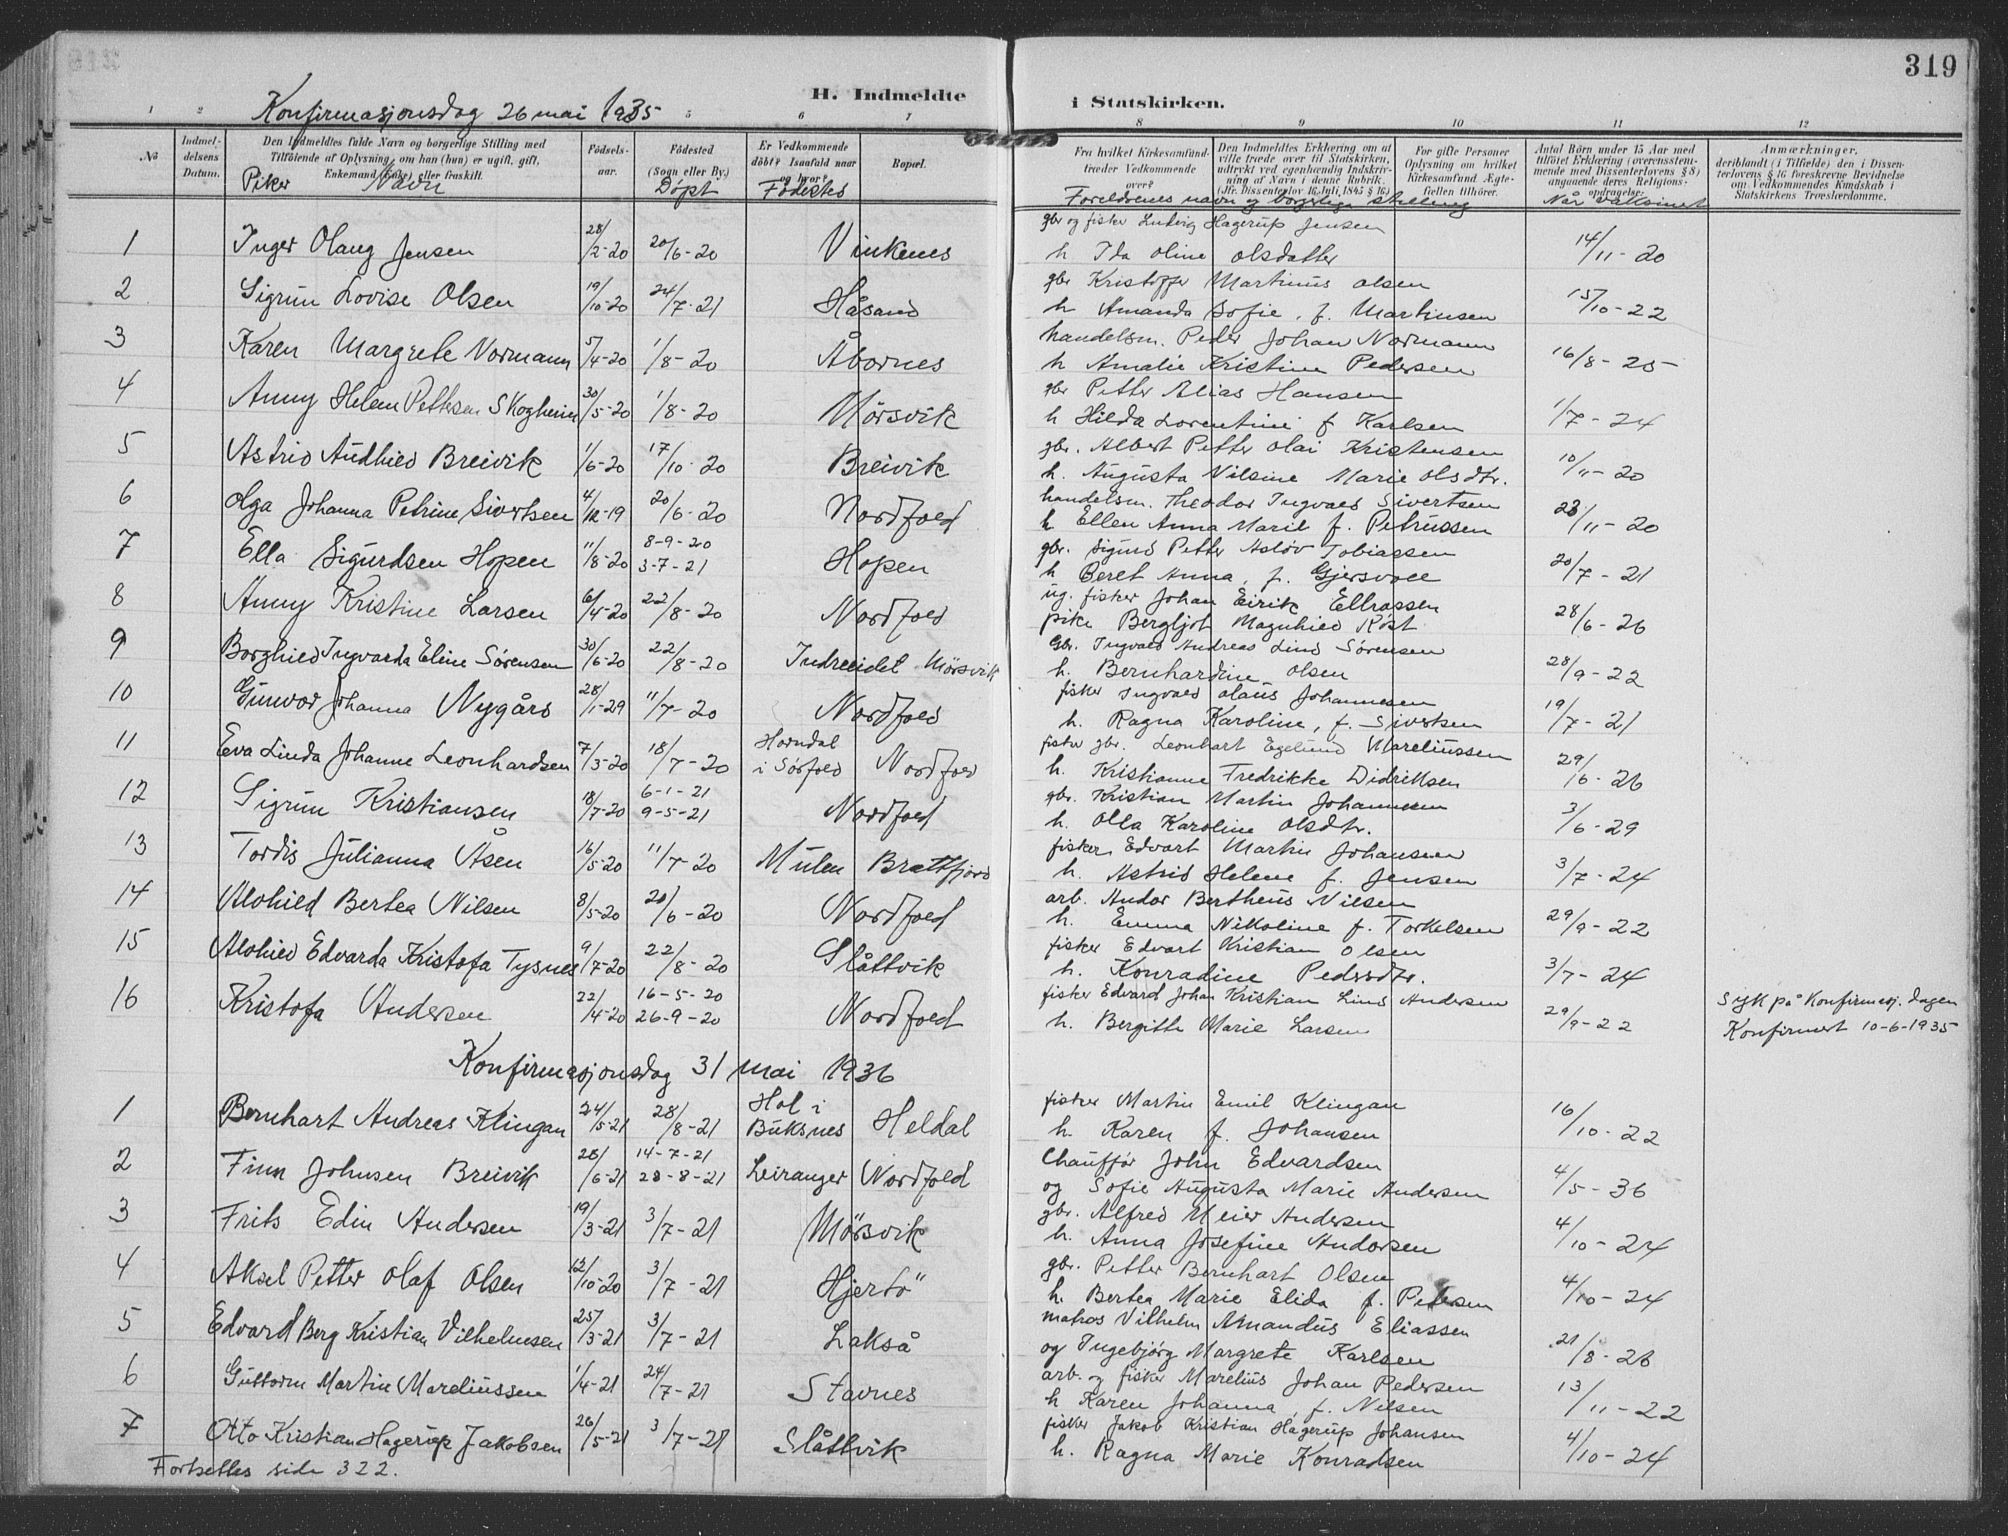 319
H. Indmeldte i Statskirken.
Konfirmasjonsdag 26 mai 1935
1 2 5 6 7 8 9 10 11 12
No
Indmeldelsens Datum.
Den Indmeldtes fulde Navn og borgerlige Stilling med Tilføiende af Oplysning, om han (hun) er ugift, gift, Enkemand (Enke) eller fraskilt.
Piker Navn
Fødselsaar.
Fødested (Sogn eller By.)
Døpt
Er Vedkommende døbt? Isaafald naar og hvor?
Fødested
Bopæl.
Fra hvilket Kirkesamfund træder Vedkommende over?
Den Indmeldtes Erklæring om at ville træde over til Statskirken, udtrykt ved egenhændig Indskrivning af Navn i denne Rubrik. (Jfr. Dissenterlov 16 Juli 1845 § 16)
For gifte Personer Oplysning om hvilket Kirkesamfund Ægtefællen tilhører.
Foreldrenes navn og borgerlige stilling
Antal Børn under 15 Aar med tilføiet Erklæring (overensstemmende med Dissenterlovens § 8) angaaende deres Religionsopdragelse.
Når vaksinert
Anmærkninger, deriblandt (i Tilfælde) den i Dissenterlovens § 16 foreskrevne Bevidnelse om Vedkommendes Kundskab i Statskirkens Troeslærdomme.
1 Inger Olaug Jensen 28/2-20 20/6-20 Vinkenes gbr og fisker Ludvig Hagerup Jensen
h Ida Oline Olsdatter 14/11-20
2 Sigrun Lovise Olsen 19/10-20 24/7-21 Håsand gbr Kristoffer Martinus Olsen
h Amanda Sofie, f. Martinsen 15/10-22
3 Karen Margrete Normann 5/4-20 1/8-20 Åbornes handelsm. Peder Johan Normann
h Amalie Kristine Pedersen 16/8-25
4 Anny Helen Pettersen Skogheim 30/5-20 1/8-20 Mørsvik gbr Petter Alias Hansen
h Hilda Lorentine f Karlsen 1/7-24
5 Astrid Audhild Breivik 1/6-20 17/10-20 Breivik gbr. Albert Petter Olai Kristensen
h. Augusta Nilsine Marie Olsdtr. 10/11-20
6 Olga Johanna Petrine Sivertsen 4/12-19 20/6-20 Nordfold handelsm. Theodor Ingvald Sivertsen
h Ellen Anna Marie f. Petrussen 28/11-20
7 Ella Sigurdsen Hopen 11/8-20 8-9-20
3-7-21 Hopen gbr. Sigurd Petter Asløv Tobiassen
h Beret Anna, f. Gjersvoll 20/7-21
8 Anny Kristine Larsen 6/4-20 22/8-20 Nordfold ug. fisker Johan Eirik Ellrassen
pike Bergljot Magnhild Røst 28/6-26
9 Borghild Ingvarda Eline Sørensen 30/6-20 22/8-20 Indreeidet Mørsvik Gbr. Ingvald Andreas Lind Sørensen
h. Bernhardine Olsen 28/9-22
10 Gunvor Johanna Nygård 28/1-29 11/7-20 Nordfold fisker Ingvald Olaus Johannesen
h. Ragna Karoline, f. Sivertsen 19/7-21
11 Eva Linda Johanne Leonhardsen 7/3-20 18/7-20 Horndal
i Sørfold Nordfold fisker gbr. Leonhart Egelund Mareliussen
h. Kristianne Fredrikke Didriksen 29/6-26
12 Sigrun Kristiansen 18/7-20 6-1-21
9-5-21 Nordfold gbr. Kristian Martin Johannesen
h. Olla Karoline Olsdtr. 3/6-29
13 Tordis Julianna Åsen 16/5-20 11/7-20 Mulen Brattfjord fisker Edvart Martin Johansen
h. Astrid Helene f. Jensen 3/7-24
14 Alohild Bertea Nilsen 8/5-20 20/6-20 Nordfold arb. Andor Bertheus Nilsen
h. Emma Nikoline f. Torkelsen 29/9-22
15 Alohild Edvarda Kristofa Tysnes 9/7-20 22/8-20 Slåttvik fisker Edvart Kristian Olsen
h. Konradine Pedersdtr. 3/7-24
16 Kristofa Andersen 22/4-20 16-5-20
26-9-20 Nordfold fisker Edvard Johan Kristian Lind Andersen
h. Bergitte Marie Larsen 29/9-22 Syk på Konfirmasj. dagen
Konfirmert 10-6-1935
Konfirmasjonsdag 31 mai 1936
1 Bernhart Andreas Klingan 24/5-21 28/8-21 Hol i
Buksnes Heldal fisker Martin Emil Klingan
h. Karen f. Johansen 16/10-22
2 Finn Johnsen Breivik 28/6-21 14-7-21
28-8-21 Leiranger Nordfold Chauffør John Edvardsen
og Sofie Augusta Marie Andersen 4/5-36
3 Frits Edin Andersen 19/3-21 3/7-21 Mørsvik gbr. Alfred Meier Andersen
h. Anna Josefine Andersen 4/10-24
4 Aksel Petter Olaf Olsen 12/10-20 3/7-21 Hjertö gbr. Petter Bernhart Olsen
h. Bertea Marie Elida f. Petersen 4/10-24
5 Edvard Berg Kristian Vilhelmsen 25/3-21 3/7-21 Lakså matros Vilhelm Amandus Eliassen
og Ingebjørg Margrete Karlsen 21/8-26
6 Guttorm Martin Mareliussen 1/4-21 24/7-21 Stavnes arb. og fisker Marelius Johan Pedersen
h Karen Johanna, f. Nilsen 13/11-22
7 Otto Kristian Hagerup Jakobsen 26/5-21 3/7-21 Slåttvik fisker Jakob Kristian Hagerup Johansen
h. Ragna Marie Konradsen 4/10-24
Fortsettes side 322.